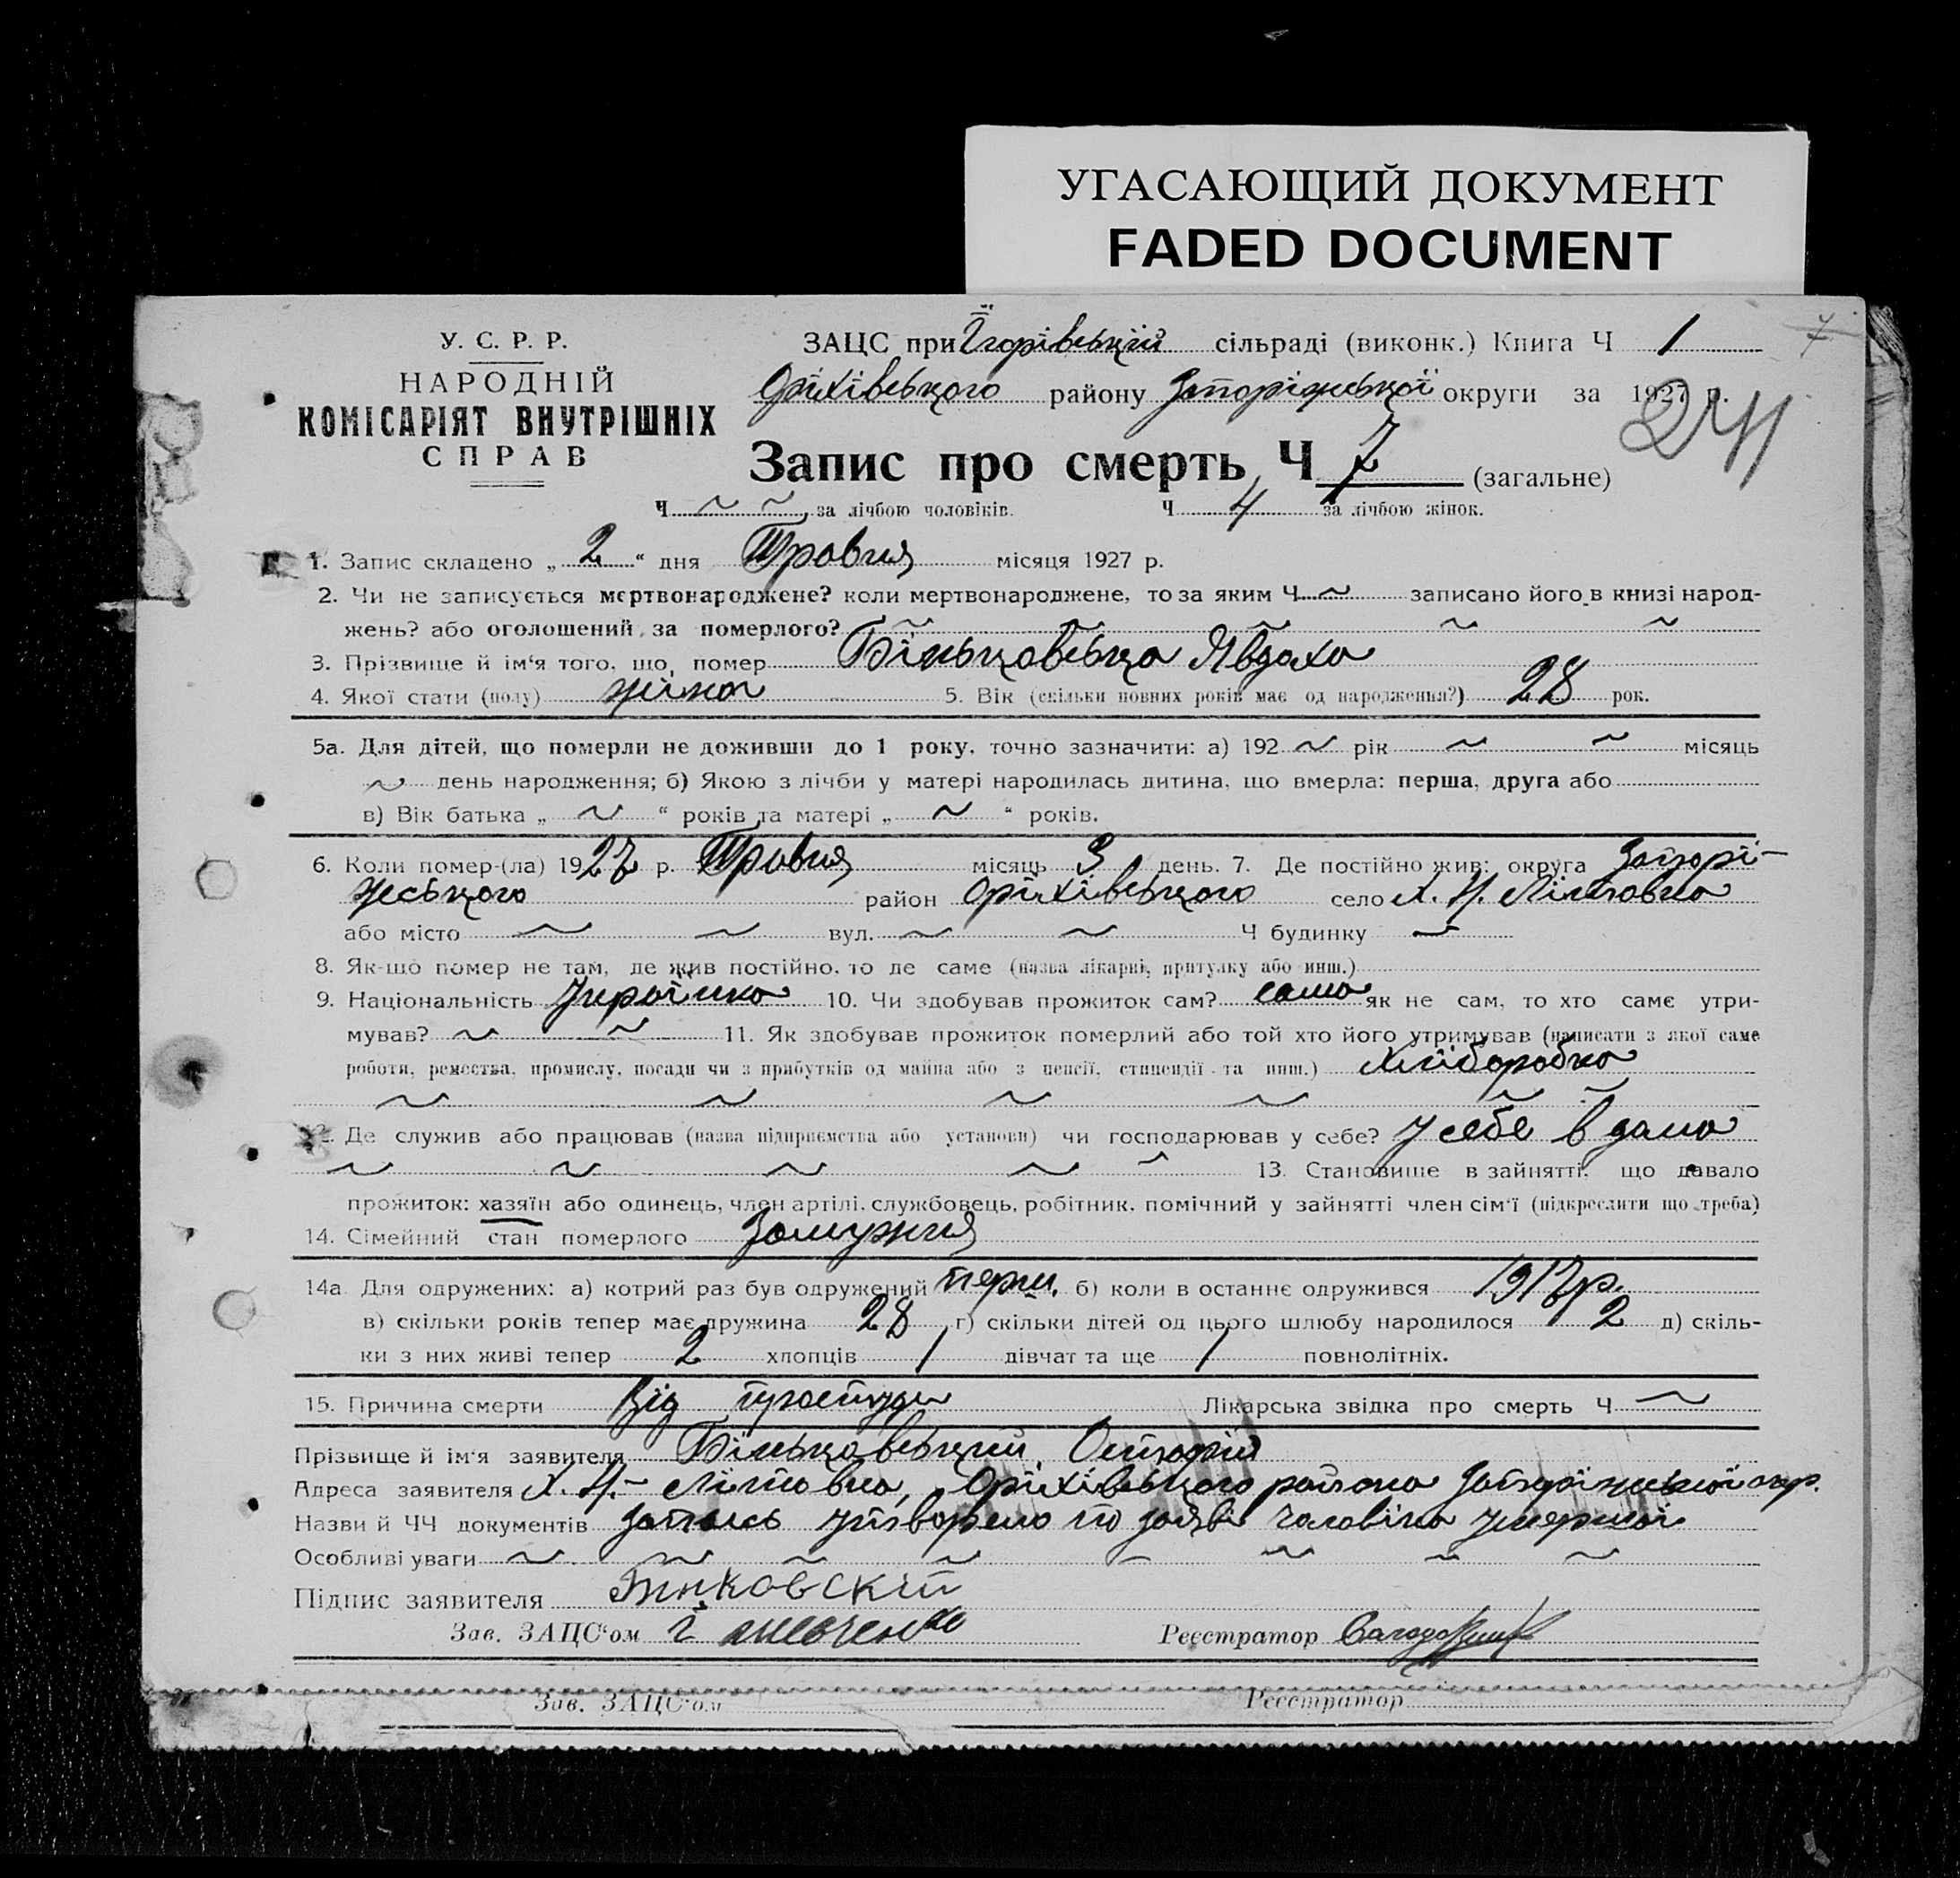 УГАСАЮЩИЙ ДОКУМЕНТ
FADED DOCUMENT
У. С. Р. Р.
НАРОДНІЙ
КОМІСАРІЯТ ВНУТРІШНІХ
СПРАВ
ЗАЦС при сільраді (виконк.) Книга Ч 1
7
Оріхівського району Запоріжської округи за 1927 р.
241
Запис про смерть Ч 7 (загальне)
Ч ~ ~ за лічбою чоловіків. Ч 4 за лічбою жінок.
1. Запис складено „ 2 “ дня Травня місяця 1927 р.
2. Чи не записується мертвонароджене? коли мертвонароджене, то за яким Ч ~ записано його в книзі народ-
жень? або оголошений за померлого? ~ ~ ~ ~ ~
3. Прізвище й ім‘я того, що помер Біньковська Явдоха
4. Якої стати (полу) жіноч 5. Вік (скільки повних років має од народження?) 28 рок.
5а. Для дітей, що померли не доживши до 1 року, точно зазначити: а) 192 ~ рік ~ ~ місяць
~ день народження; б) Якою з лічби у матері народилась дитина, що вмерла: перша, друга або
в) Вік батька „ ~ “ років та матері „ ~ “ років.
6. Коли помер-(ла) 1927 р. Травня місяць 3 день. 7. Де постійно жив: округа Запорі-
жського район Оріхівського село Х. Н.
або місто ~ ~ вул. ~ ~ Ч будинку ~
8. Як-що помер не там, де жив постійно, то де саме (назва лікарні, притулку або инш.)
9. Національність Українка 10. Чи здобував прожиток сам? сама як не сам, то хто саме утри-
мував? ~ ~ 11. Як здобував прожиток померлий або той хто його утримував (написати з якої саме
роботи, ремества, промислу, посади чи з прибутків од майна або з пенсії, стипендії та инш.) Хліборобка
~ ~ ~ ~ ~ ~
12. Де служив або працював (назва підприємства або установи) чи господарював у себе? у себе в дома
~ ~ ~ ~ ~ 13. Становище в зайнятті, що давало
прожиток: хазяїн або одинець, член артілі, службовець, робітник, помічний у зайнятті член сім‘ї (підкреслити що треба)
14. Сімейний стан померлого Замужня
14а Для одружених: а) котрий раз був одружений перш. б) коли в останнє одружився 1917р.
в) скільки років тепер має дружина 28 г) скільки дітей од цього шлюбу народилося 2 д) скіль-
ки з них живі тепер 2 хлопців 1 дівчат та ще 1 повнолітніх.
15. Причина смерти Від простуди Лікарська звідка про смерть Ч ~
Прізвище й ім‘я заявителя Біньковський
Адреса заявителя Х. Н.- Оріхівського района Запоріжської окр.
Назви й ЧЧ документів Запись утворено по заяві чоловіка умершої
Особливі уваги ~ ~ ~ ~ ~ ~ ~ ~
Підпис заявителя Бинковский
Зав. ЗАЦС‘ом Реєстратор
Зав. ЗАЦС‘ом Реєстратор